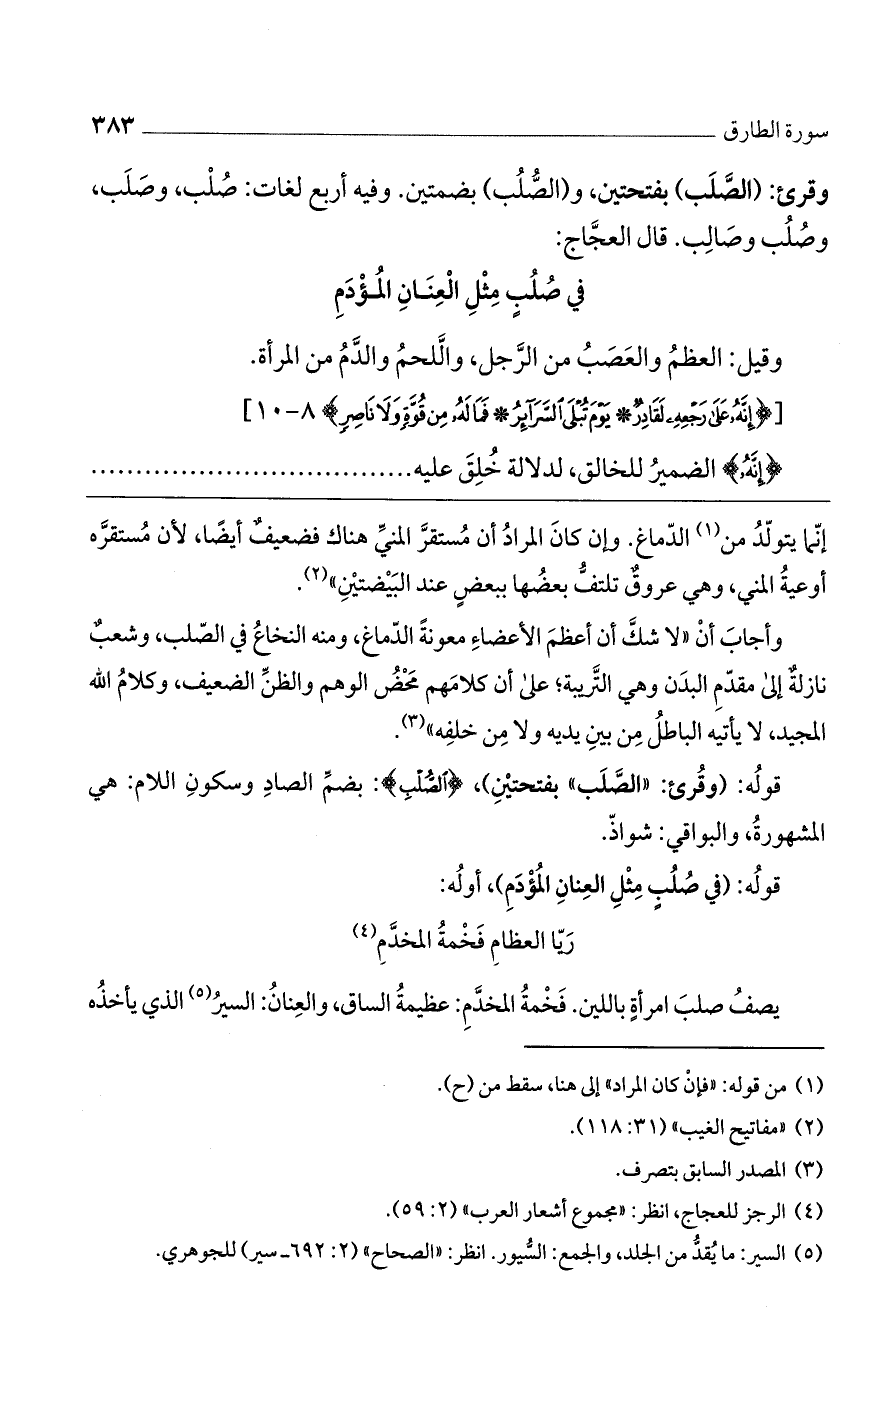 سورة الطارق ٣٨٣
وقرئ: (الصَّلَب) بفتحتين، و(الصُّلُب) بضمتين. وفيه أربع لغات: صُلْب، وصَلَب،
وصُلُب وصَالِب. قال العجَّاج:
في صُلُبٍ مِثْلِ الْعِنَـانِ الْمُـؤْدَمِ
وقيل: العظمُ والعَصَبُ من الرَّجل، واللَّحمُ والدَّمُ من المرأة.
[﴿إِنَّهُۥ عَلَىٰ رَجْعِهِۦ لَقَادِرٌ * يَوْمَ تُبْلَى ٱلسَّرَآئِرُ * فَمَا لَهُۥ مِن قُوَّةٍ وَلَا نَاصِرٍ﴾ ٨-١٠]
﴿إِنَّهُۥ﴾ الضميرُ للخالق، لدلالة خُلِقَ عليه....................................
إنّما يتولّدُ من(١) الدّماغ. وإن كانَ المرادُ أن مُستقرَّ المنيِّ هناك فضعيفٌ أيضًا، لأن مُستقرَّه
أوعيةُ المني، وهي عروقٌ تلتفُّ بعضُها ببعضٍ عند البَيْضتيْنِ»(٢).
وأجابَ أنْ «لا شكَّ أن أعظمَ الأعضاءِ معونةً الدّماغ، ومنه النخاعُ في الصّلب، وشعبٌ
نازلةٌ إلىٰ مقدّمِ البدَن وهي التَّريبة؛ علىٰ أن كلامَهم مَحْضُ الوهم والظنِّ الضعيف، وكلامُ الله
المجيد، لا يأتيه الباطلُ مِن بينِ يديه ولا مِن خلفِه»(٣).
قولُه: (وقُرئ: «الصَّلَب» بفتحتيْنِ)، ﴿ٱلصُّلْبِ﴾: بضمِّ الصادِ وسكونِ اللام: هي
المشهورةُ، والبواقي: شواذّ.
قولُه: (في صُلُبٍ مِثْلِ العِنانِ المُؤْدَمِ)، أولُه:
رَيّا العظامِ فَخْمةُ المخدَّمِ(٤)
يصفُ صلبَ امرأةٍ باللين. فَخْمةُ المخدَّمِ: عظيمةُ الساق، والعِنانُ: السيرُ(٥) الذي يأخذُه
(١) من قوله: «فإنْ كان المراد» إلى هنا، سقط من (ح).
(٢) «مفاتيح الغيب» (٣١: ١١٨).
(٣) المصدر السابق بتصرف.
(٤) الرجز للعجاج، انظر: «مجموع أشعار العرب» (٢: ٥٩).
(٥) السير: ما يُقدُّ من الجلد، والجمع: السُّيور. انظر: «الصحاح» (٢: ٦٩٢ـ سير) للجوهري.